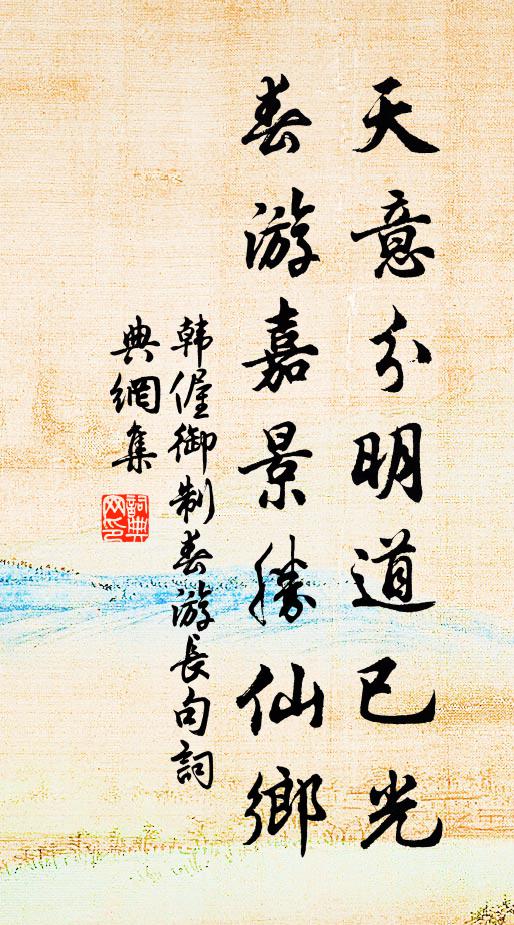 天意分明道已光
春游嘉景勝仙鄉
韩偓御制春游長句詞
典網集
詞典网印